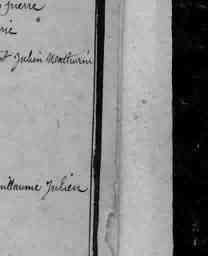 pierre
rie
st Julien Mathurin
uillaume Julien